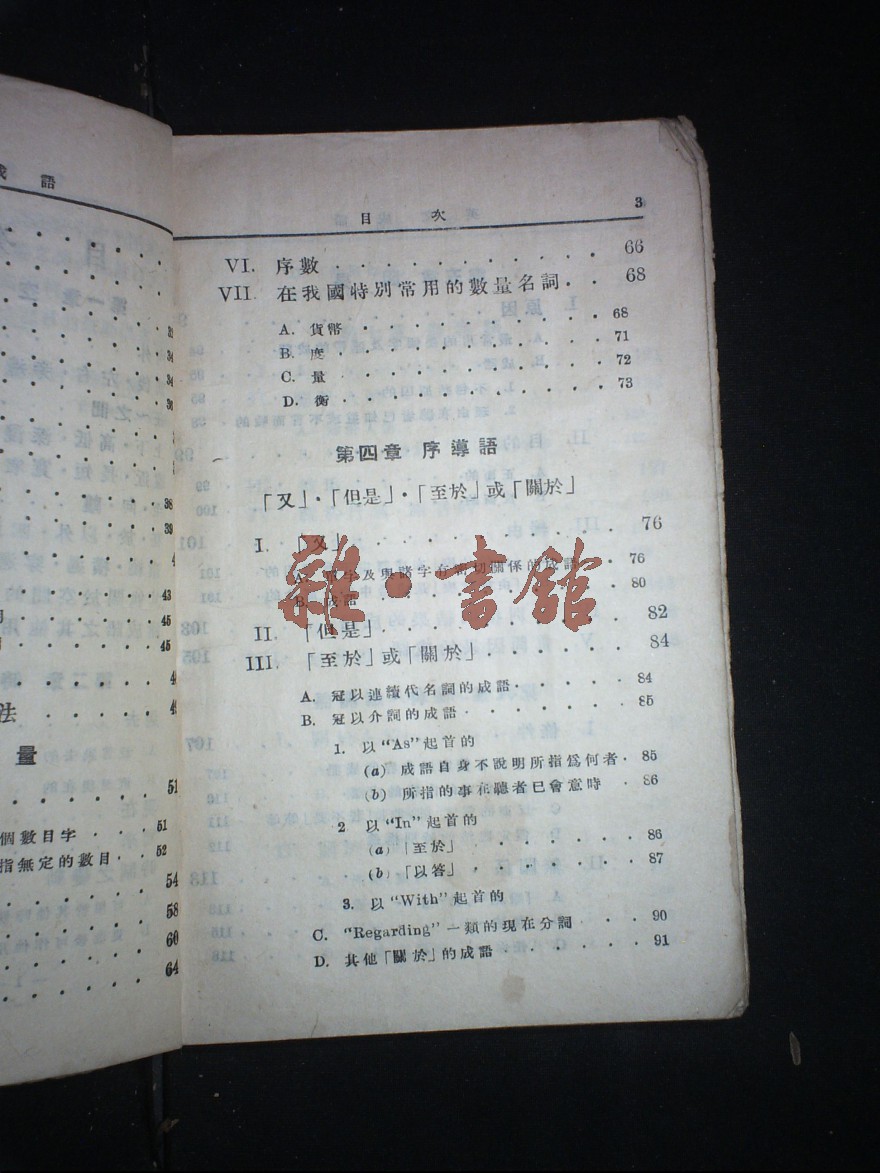 語
32
34
34
36
38
39
43
45
45
法 . . . . .
量
51
個數目字 . . . 51
指無定的數目 . . 52
54
58
60
64
目 次 3
VI. 序數 . . . . . . . . . . . . 66
VII. 在我國特別常用的數量名詞 . . . 68
A. 貨幣 . . . . . . . . . . . 68
B. 度 . . . . . . . . . . . 71
C. 量 . . . . . . . . . . . 72
D. 衡 . . . . . . . . . . . 73
第四章 序導語
「又」·「但是」·「至於」或「關於」
I. 「又」 . . . . . . . . . . . 76
A. 及與諸字有密切關係的成語 . . 76
B. 成語 . . . . . . . . . . 80
II. 「但是」 . . . . . . . . . . 82
III. 「至於」或「關於」 . . . . . . . 84
A. 冠以連續代名詞的成語 . . . . . 84
B. 冠以介詞的成語 . . . . . . . 85
1. 以“As”起首的
(a) 成語自身不說明所指爲何者 . 85
(b) 所指的事在聽者已會意時 . . 86
2 以“In”起首的
(a) 「至於」 . . . . . . . . 86
(b) 「以答」 . . . . . . . . 87
3. 以“With”起首的
C. “Regarding”一類的現在分詞 . . . . 90
D. 其他「關於」的成語 . . . . . . . 91
雜·書館